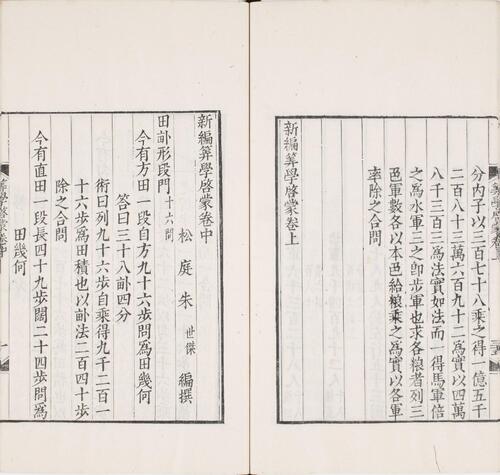 分內子以三百七十八乘之得一億五千
二百八十三萬六百九十二爲實以四萬
八千三百三爲法實如法而一得馬軍倍
之爲水軍三之卽步軍也求各糧者列三
色軍數各以本色給糧乘之爲實以各軍
率除之合問
新編筭學啓蒙卷上
新編筭學啓蒙卷中
松庭朱世傑編撰
田畝形段門十六問
今有方田一段自方九十六步問爲田幾何
答曰三十八畝四分
術曰列九十六步自乘得九千二百一
十六步爲田積也以畝法二百四十步
除之合問
今有直田一段長四十九步闊二十四步問爲
田幾何